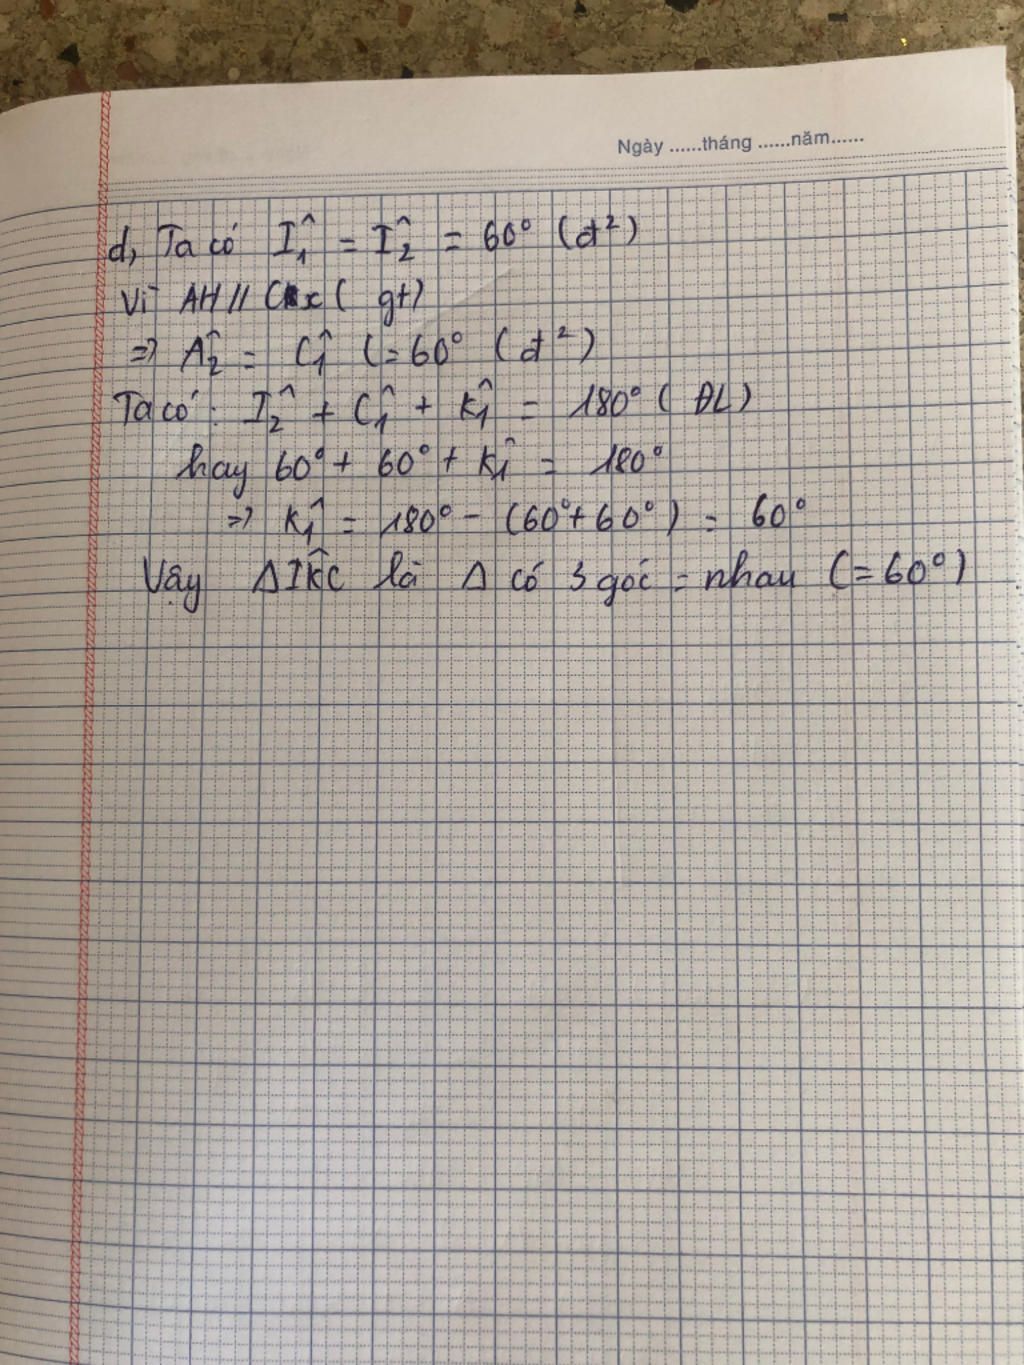 Ngày ......tháng ......năm......
d, Ta có Î₁ = Î₂ = 60° (đ²)
Vì AH // Cx ( gt)
=> Â₂ = Ĉ₁ (= 60° (đ²)
Ta có : Î₂ + Ĉ₁ + K̂₁ = 180° ( ĐL)
hay 60° + 60° + K̂₁ = 180°
=> K̂₁ = 180° - (60° + 60°) = 60°
Vậy ΔIK̂C là Δ có 3 góc = nhau (= 60°)